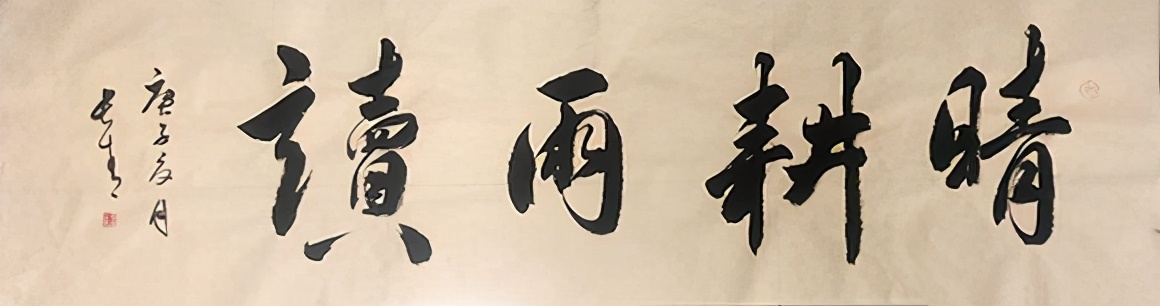 晴耕雨讀
庚子夏月